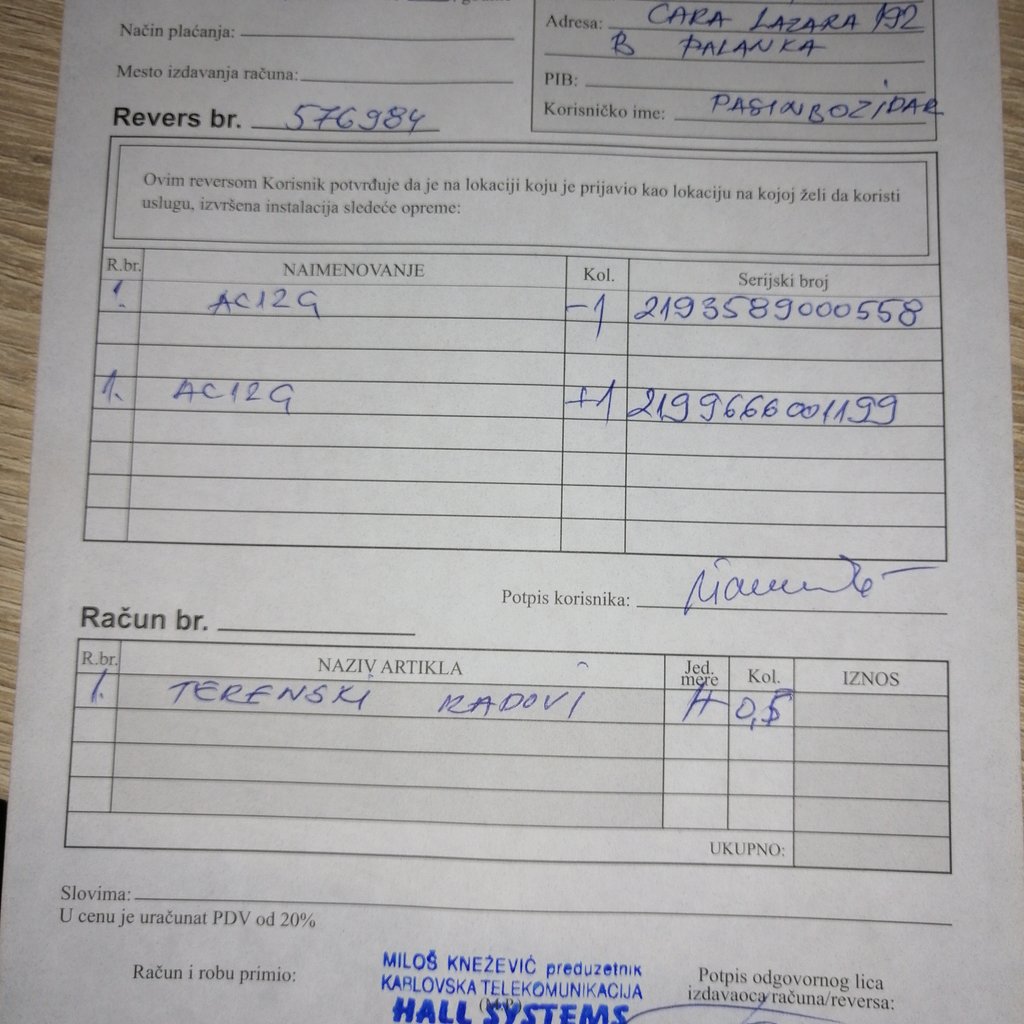 Način plaćanja:
Adresa: CARA LAZARA 192
B PALANKA
Mesto izdavanja računa:
PIB:
Revers br. 576984
Korisničko ime: PASINBOZIDAR
Ovim reversom Korisnik potvrđuje da je na lokaciji koju je prijavio kao lokaciju na kojoj želi da koristi
uslugu, izvršena instalacija sledeće opreme:
R.br. NAIMENOVANJE Kol. Serijski broj
1. AC12G -1 2193589000558
1. AC12G +1 2199666001199
Potpis korisnika:
Račun br.
R.br. NAZIV ARTIKLA Jed. mere Kol. IZNOS
1. TERENSKI RADOVI H 0,5
UKUPNO:
Slovima:
U cenu je uračunat PDV od 20%
Račun i robu primio:
MILOŠ KNEŽEVIĆ preduzetnik
KABLOVSKA TELEKOMUNIKACIJA
(M.P.)
HALL SYSTEMS
Potpis odgovornog lica
izdavaoca računa/reversa: